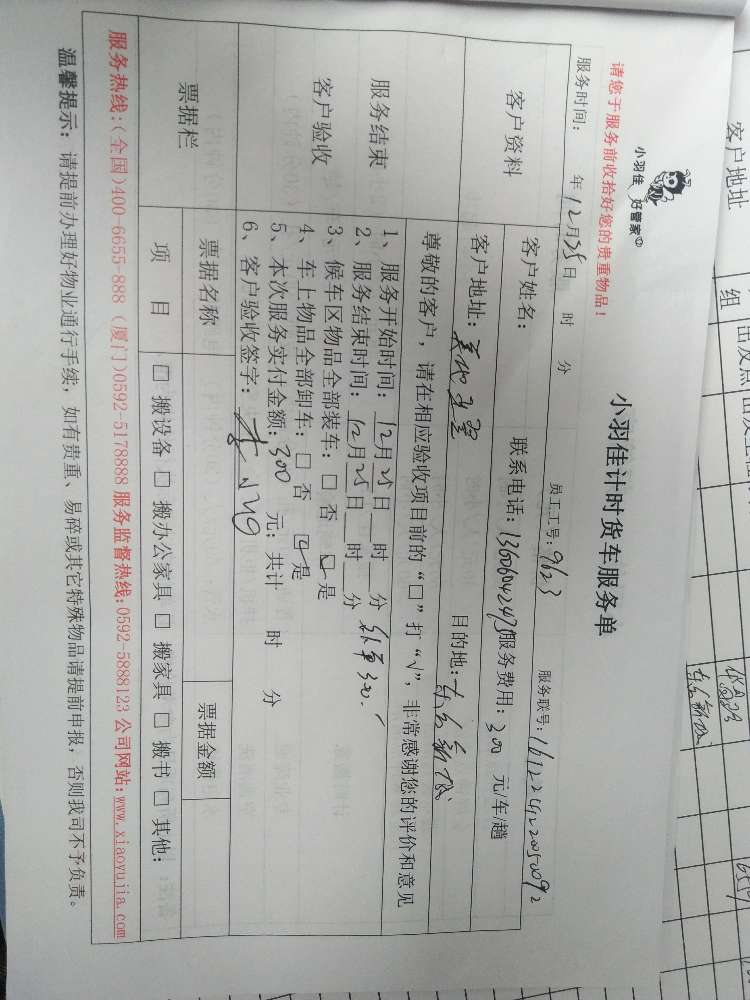 小羽佳 好管家
小羽佳计时货车服务单
请您于服务前收拾好您的贵重物品！
员工工号：9623 服务联号：161224220050092
服务时间： 年12月25日 时 分
客户资料
客户姓名： 联系电话：13606042473 服务费用：300 元/车/趟
客户地址： 目的地：
服务结束
客户验收
尊敬的客户，请在相应验收项目前的“□”打“√”，非常感谢您的评价和意见
1、服务开始时间：12月25日 时 分
2、服务结束时间：12月25日 时 分
3、候车区物品全部装车：□ 否 ☑是
4、车上物品全部卸车：□ 否 ☑是
5、本次服务实付金额：300 元；共计 时 分
6、客户验收签字：
票据栏
票据名称 票据金额
项 目 □ 搬设备 □ 搬办公家具 □ 搬家具 □ 搬书 □ 其他：
服务热线：（全国）400-6655-888（厦门）0592-5178888 服务监督热线：0592-5888123 公司网站：www.xiaoyujia.com
温馨提示：请提前办理好物业通行手续，如有贵重、易碎或其它特殊物品请提前申报，否则我司不予负责。
客户地址
组